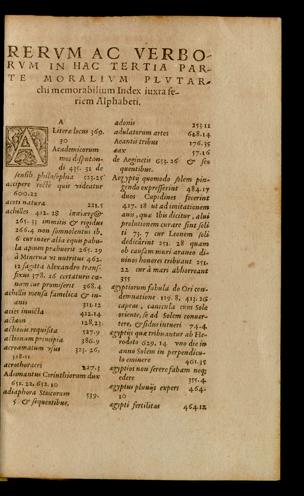 RERVM AC VERBO-
RVM IN HAC TERTIA PAR-
TE MORALIVM PLVTAR-
chi memorabilium Index iuxta se-
riem Alphabeti.
A
A
Literæ locus 369.
30
Academicorum
mos disputan-
di 435. 31 de
sensili philosophia 523.25
accipere recte quis videatur
600.22
aceti natura 221.5
achilles 412. 28
265. 33 immitis & rigidus
266.4 non somnolentus ib.
6 cur inter alia equis pabu-
la apium præbuerit 265. 29
à Minerua vi nutritus 462.
12 sagitta Alexandro trans-
fixus 378. 26 certaturis cœ-
nam cur promiserit 568.4
achillis mensa famelica & in-
anis 311.12
acies inuicta 412.14
actæon 128.23
actionis requisita 127.9
actionum principia 386.9
acroamatum vsus 323. 26.
318.11
acrothoraces 227.3
Adamantus Corinthiorum dux
651. 22, 652. 10
adiaphora Stoicorum 539.
5 & sequentibus.
adonis 253.11
adulatorum artes 648.14
Aeantis tribus 176.35
aax 57.16
de Aeginetis 653.26 & se-
quentibus.
Aegyptij quomodo solem pin-
gendo expresserint 484.17
duos Cupidines fecerint
427. 18 ut ad imitationem
anu, qua Ibis dicitur, alui
prolutionem curare sint soli-
ti 75. 7 cur Leonem soli
dedicarint 251. 28 quam
ob causam muri araneo di-
uinos honores tribuant 251.
22 cur à mari abhorreant
355
ægyptiorum fabula de Ori con-
demnatione 119. 8, 413. 26
capræ, canicula cum Sole
oriente, se ad Solem conuer-
tere, & sidus intueri 74.4
ægyptijs qua tribuantur ab He-
rodoto 629. 14 vno die in
anno Solem in perpendicu-
lo eminere 401.35
ægyptios non serere fabam neq;
edere 355.4
ægyptus pluuijs expers 464.
10
ægypti fertilitas 464.12